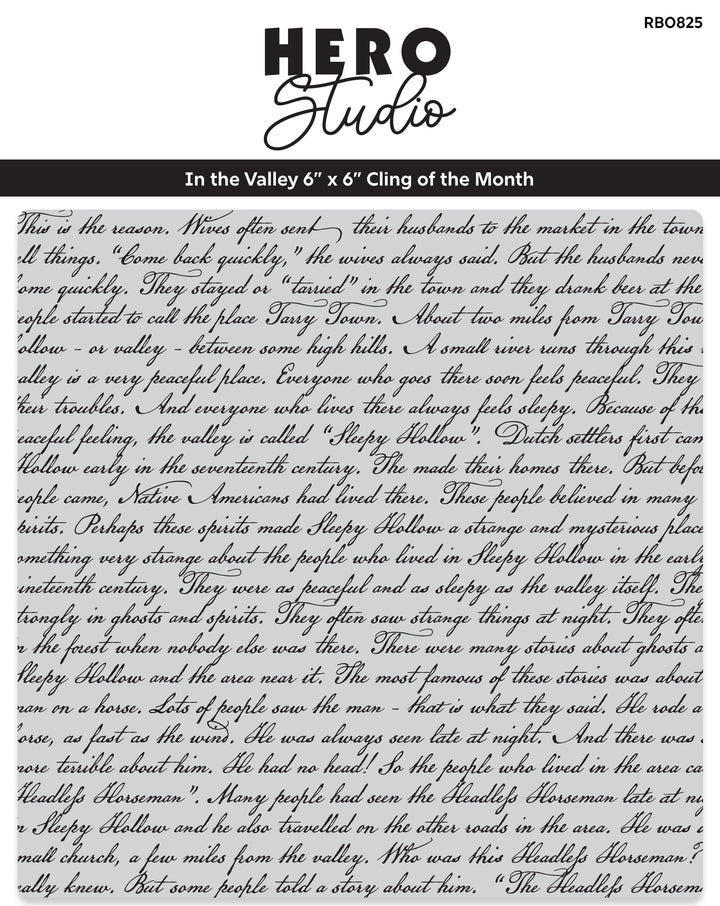 RBO825
HERO
Studio
In the Valley 6” x 6” Cling of the Month
This is the reason. Wives often sent their husbands to the market in the town
ell things. “Come back quickly,” the wives always said. But the husbands nev
ome quickly. They stayed or “tarried” in the town and they drank beer at the
eople started to call the place Tarry Town. About two miles from Tarry Tow
ollow - or valley - between some high hills. A small river runs through this
alley is a very peaceful place. Everyone who goes there soon feels peaceful. They
heir troubles. And everyone who lives there always feels sleepy. Because of th
eaceful feeling, the valley is called “Sleepy Hollow”. Dutch settlers first cam
Hollow early in the seventeenth century. The made their homes there. But befo
eople came, Native Americans had lived there. These people believed in many
pirits. Perhaps these spirits made Sleepy Hollow a strange and mysterious place
omething very strange about the people who lived in Sleepy Hollow in the early
ineteenth century. They were as peaceful and as sleepy as the valley itself. The
trongly in ghosts and spirits. They often saw strange things at night. They ofte
n the forest when nobody else was there. There were many stories about ghosts a
Sleepy Hollow and the area near it. The most famous of these stories was about
man on a horse. Lots of people saw the man - that is what they said. He rode a
orse, as fast as the wind. He was always seen late at night. And there was
more terrible about him. He had no head! So the people who lived in the area ca
Headless Horseman”. Many people had seen the Headless Horseman late at ni
n Sleepy Hollow and he also travelled on the other roads in the area. He was
mall church, a few miles from the valley. Who was this Headless Horseman?
eally knew. But some people told a story about him. “The Headless Horsem